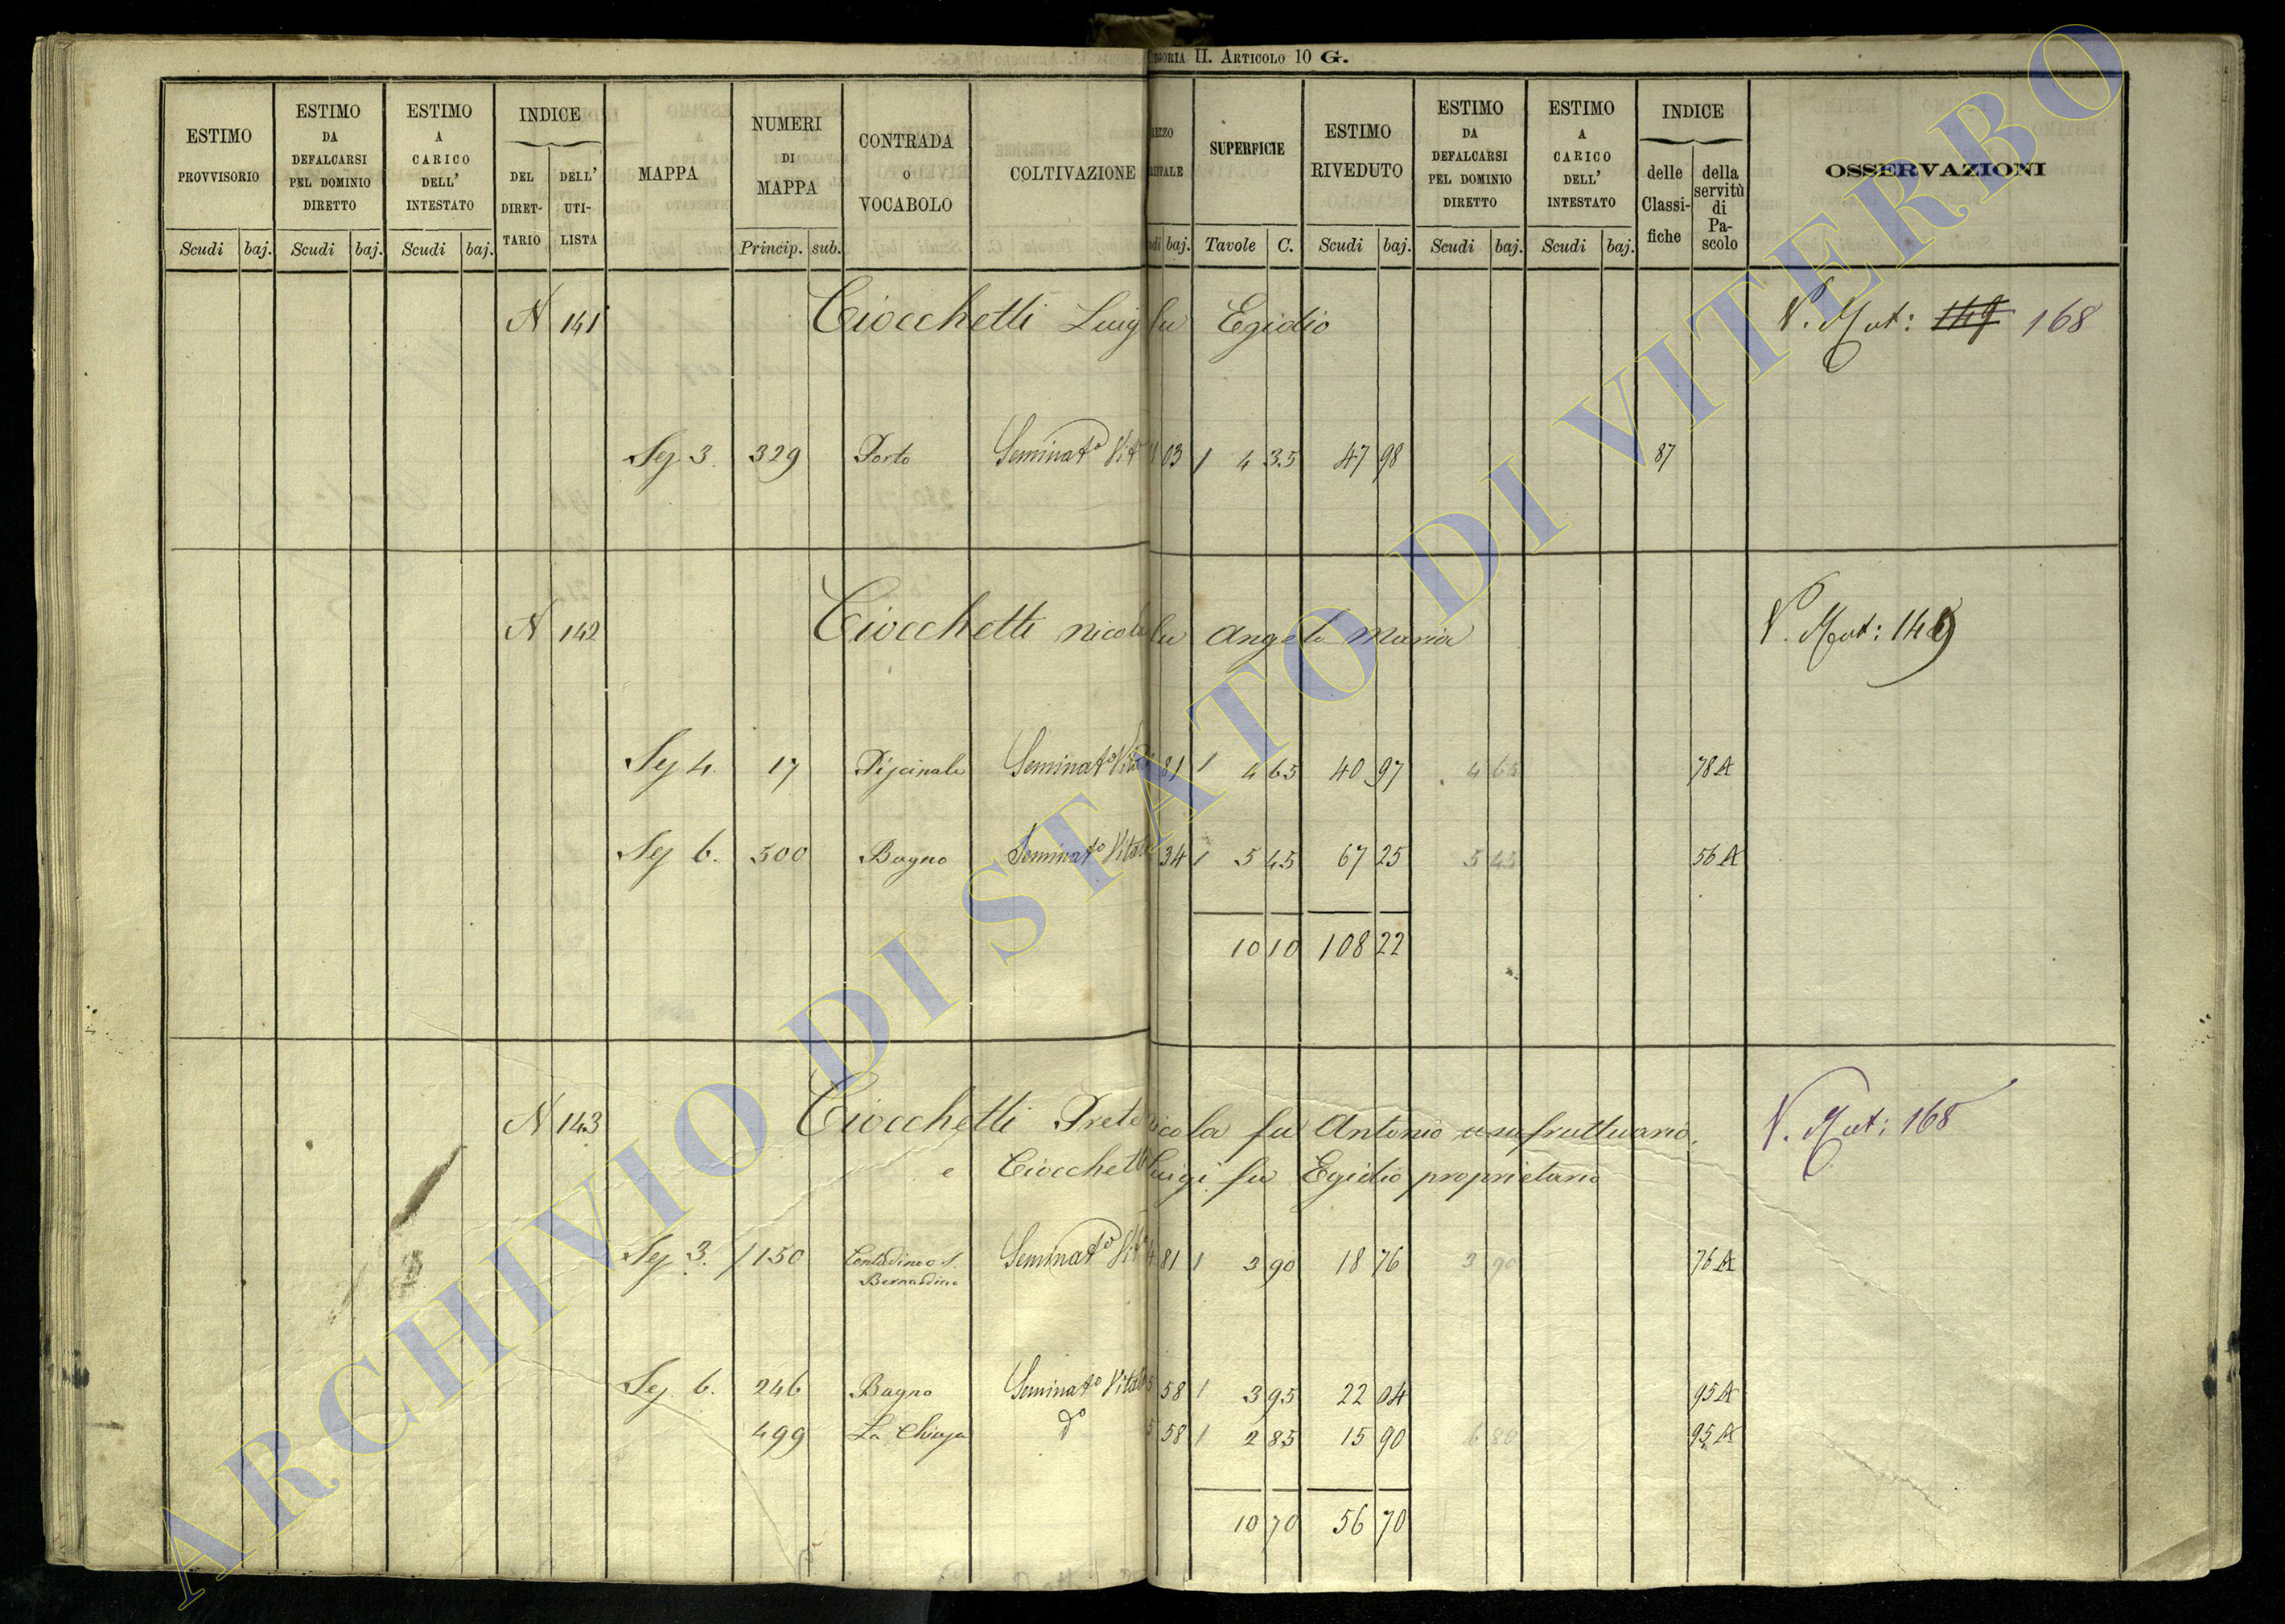 EGORIA II. ARTICOLO 10 G.
ESTIMO PROVVISORIO
ESTIMO DA DEFALCARSI PEL DOMINIO DIRETTO
ESTIMO A CARICO DELL' INTESTATO
INDICE
DEL DIRET-TARIO
DELL' UTI-LISTA
MAPPA
NUMERI DI MAPPA
CONTRADA O VOCABOLO
COLTIVAZIONE
SUPERFICIE
ESTIMO RIVEDUTO
ESTIMO DA DEFALCARSI PEL DOMINIO DIRETTO
ESTIMO A CARICO DELL' INTESTATO
INDICE
delle Classi-fiche
della servitù di Pa-scolo
OSSERVAZIONI
Scudi baj. Scudi baj. Scudi baj. Princip. sub. baj. Tavole C. Scudi baj. Scudi baj. Scudi baj.
N 141 Ciocchetti Luig fu Egidio V. Mut: 149 168
Sez 3. 329 Porto Seminato Vit 03 1 4 35 47 98 87
N 142 Ciocchetti Nicola fu Angelo Maria V. Mut: 149
Sez 4. 17 Piscinale Seminato Vitato 81 1 4 65 40 97 4 65 78 A
Sez 6. 500 Bagno Seminato Vitato 34 1 5 45 67 25 5 45 56 A
10 10 108 22
N 143 Ciocchetti Prete Nicola fu Antonio usufruttuario. V. Mut: 168
e Ciocchetti Luigi fu Egidio proprietario
Sez 3. 1150 Contadino S. Bernardino Seminato Vit 4 81 1 3 90 18 76 3 90 76 A
Sez. 6. 246 Bagno Seminato Vitato 5 58 1 3 95 22 04 95 A
499 La Chiusa do 5 58 1 2 85 15 90 6 80 95 A
10 70 56 70
ARCHIVIO DI STATO DI VITERBO